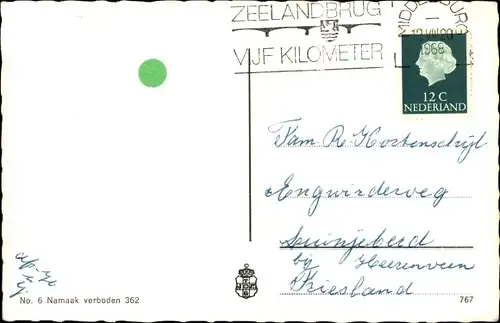 ZEELANDBRUG
VIJF KILOMETER
MIDDELBURG
12.VII.20
1968
12 C
NEDERLAND
Fam. R. Hortenschijl
Engwirderweg
Luinjeberd
bij Heerenveen
Friesland
No. 6 Namaak verboden 362
767